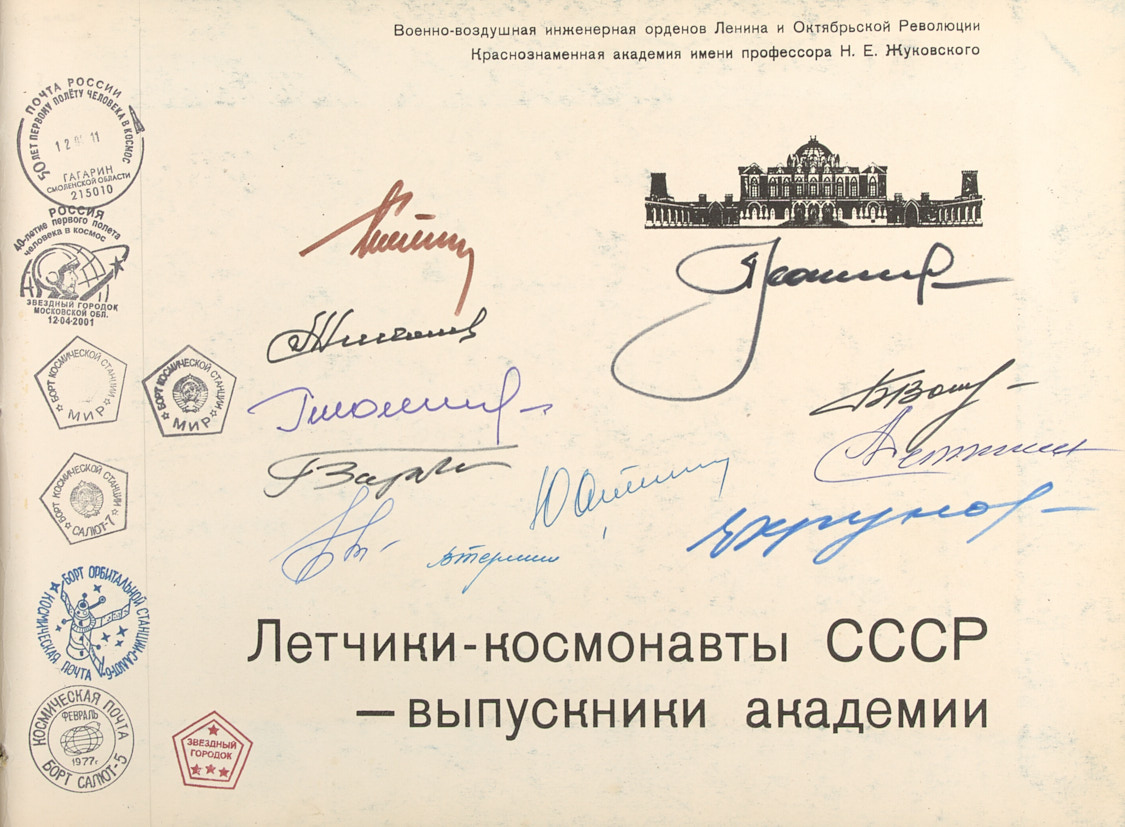 Военно-воздушная инженерная орденов Ленина и Октябрьской Революции
Краснознаменная академия имени профессора Н. Е. Жуковского
ПОЧТА РОССИИ
50 ЛЕТ ПЕРВОМУ ПОЛЁТУ ЧЕЛОВЕКА В КОСМОС
12 04 11
ГАГАРИН
СМОЛЕНСКОЙ ОБЛАСТИ
215010
РОССИЯ
40-летие первого полета
человека в космос
ЗВЕЗДНЫЙ ГОРОДОК
МОСКОВСКОЙ ОБЛ.
12-04-2001
БОРТ КОСМИЧЕСКОЙ СТАНЦИИ
МИР
БОРТ КОСМИЧЕСКОЙ СТАНЦИИ
МИР
БОРТ КОСМИЧЕСКОЙ СТАНЦИИ
САЛЮТ-7
БОРТ ОРБИТАЛЬНОЙ СТАНЦИИ-САЛЮТ-6
КОСМИЧЕСКАЯ ПОЧТА
КОСМИЧЕСКАЯ ПОЧТА
ФЕВРАЛЬ
1977г
БОРТ САЛЮТ-5
ЗВЕЗДНЫЙ
ГОРОДОК
ЕХрунов
Летчики-космонавты СССР
— выпускники академии